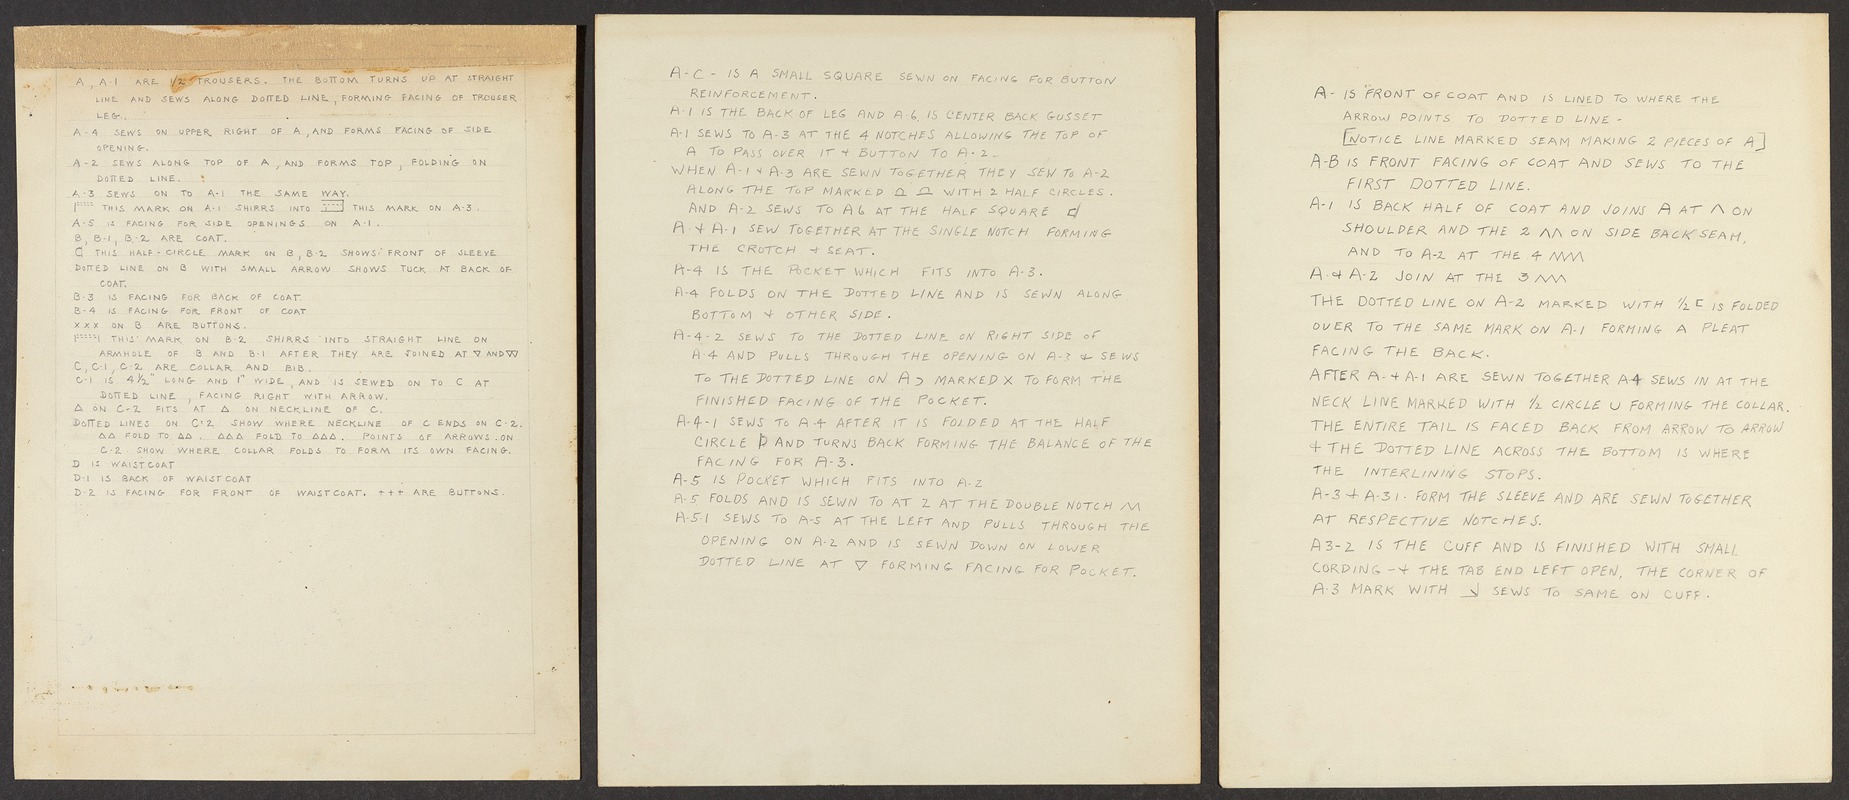 A, A-1 ARE 1/2 TROUSERS. THE BOTTOM TURNS UP AT STRAIGHT
LINE AND SEWS ALONG DOTTED LINE, FORMING FACING OF TROUSER
LEG.
A-4 SEWS ON UPPER RIGHT OF A, AND FORMS FACING OF SIDE
OPENING.
A-2 SEWS ALONG TOP OF A, AND FORMS TOP, FOLDING ON
DOTTED LINE.
A-3 SEWS ON TO A-1 THE SAME WAY.
THIS MARK ON A-1 SHIRRS INTO THIS MARK ON A-3.
A-5 IS FACING FOR SIDE OPENINGS ON A-1.
B, B-1, B-2 ARE COAT.
THIS HALF-CIRCLE MARK ON B, B-2 SHOWS FRONT OF SLEEVE
DOTTED LINE ON B WITH SMALL ARROW SHOWS TUCK AT BACK OF
COAT.
B-3 IS FACING FOR BACK OF COAT
B-4 IS FACING FOR FRONT OF COAT
XXX ON B ARE BUTTONS.
THIS MARK ON B-2 SHIRRS INTO STRAIGHT LINE ON
ARMHOLE OF B AND B-1 AFTER THEY ARE JOINED AT ▽ AND ▽▽
C, C-1, C-2 ARE COLLAR AND BIB.
C-1 IS 4½" LONG AND 1" WIDE, AND IS SEWED ON TO C AT
DOTTED LINE, FACING RIGHT WITH ARROW.
△ ON C-2 FITS AT △ ON NECKLINE OF C.
DOTTED LINES ON C-2 SHOW WHERE NECKLINE OF C ENDS ON C-2.
△△ FOLD TO △△. △△△ FOLD TO △△△. POINTS OF ARROWS ON
C-2 SHOW WHERE COLLAR FOLDS TO FORM ITS OWN FACING.
D IS WAISTCOAT
D-1 IS BACK OF WAISTCOAT
D-2 IS FACING FOR FRONT OF WAISTCOAT. +++ ARE BUTTONS.
A-C - IS A SMALL SQUARE SEWN ON FACING FOR BUTTON
REINFORCEMENT.
A-1 IS THE BACK OF LEG AND A-6 IS CENTER BACK GUSSET
A-1 SEWS TO A-3 AT THE 4 NOTCHES ALLOWING THE TOP OF
A TO PASS OVER IT + BUTTON TO A-2.
WHEN A-1 + A-3 ARE SEWN TOGETHER THEY SEW TO A-2
ALONG THE TOP MARKED WITH 2 HALF CIRCLES.
AND A-2 SEWS TO A6 AT THE HALF SQUARE
A + A-1 SEW TOGETHER AT THE SINGLE NOTCH FORMING
THE CROTCH + SEAT.
A-4 IS THE POCKET WHICH FITS INTO A-3.
A-4 FOLDS ON THE DOTTED LINE AND IS SEWN ALONG
BOTTOM + OTHER SIDE.
A-4-2 SEWS TO THE DOTTED LINE ON RIGHT SIDE OF
A-4 AND PULLS THROUGH THE OPENING ON A-3 + SEWS
TO THE DOTTED LINE ON A3 MARKED X TO FORM THE
FINISHED FACING OF THE POCKET.
A-4-1 SEWS TO A-4 AFTER IT IS FOLDED AT THE HALF
CIRCLE AND TURNS BACK FORMING THE BALANCE OF THE
FACING FOR A-3.
A-5 IS POCKET WHICH FITS INTO A-2
A-5 FOLDS AND IS SEWN TO AT 2 AT THE DOUBLE NOTCH ^^
A-5-1 SEWS TO A-5 AT THE LEFT AND PULLS THROUGH THE
OPENING ON A-2 AND IS SEWN DOWN ON LOWER
DOTTED LINE AT ▽ FORMING FACING FOR POCKET.
A - IS FRONT OF COAT AND IS LINED TO WHERE THE
ARROW POINTS TO DOTTED LINE -
[NOTICE LINE MARKED SEAM MAKING 2 PIECES OF A]
A-B IS FRONT FACING OF COAT AND SEWS TO THE
FIRST DOTTED LINE.
A-1 IS BACK HALF OF COAT AND JOINS A AT ^ ON
SHOULDER AND THE 2 ^^ ON SIDE BACK SEAM,
AND TO A-2 AT THE 4 ^^^^
A + A-2 JOIN AT THE 3 ^^^
THE DOTTED LINE ON A-2 MARKED WITH ½ ⊏ IS FOLDED
OVER TO THE SAME MARK ON A-1 FORMING A PLEAT
FACING THE BACK.
AFTER A- + A-1 ARE SEWN TOGETHER A4 SEWS IN AT THE
NECK LINE MARKED WITH ½ CIRCLE ∪ FORMING THE COLLAR.
THE ENTIRE TAIL IS FACED BACK FROM ARROW TO ARROW
+ THE DOTTED LINE ACROSS THE BOTTOM IS WHERE
THE INTERLINING STOPS.
A-3 + A-31. FORM THE SLEEVE AND ARE SEWN TOGETHER
AT RESPECTIVE NOTCHES.
A3-2 IS THE CUFF AND IS FINISHED WITH SMALL
CORDING - + THE TAB END LEFT OPEN, THE CORNER OF
A-3 MARK WITH SEWS TO SAME ON CUFF.